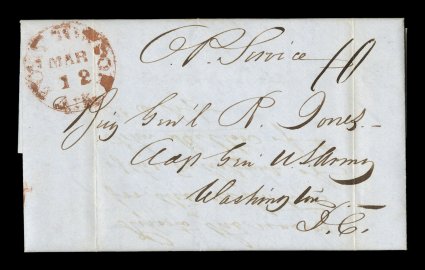 O. P. Service
10
MAR
12
Brig Gen'l R. Jones
Adjt Gen US Army
Washington
D. C.